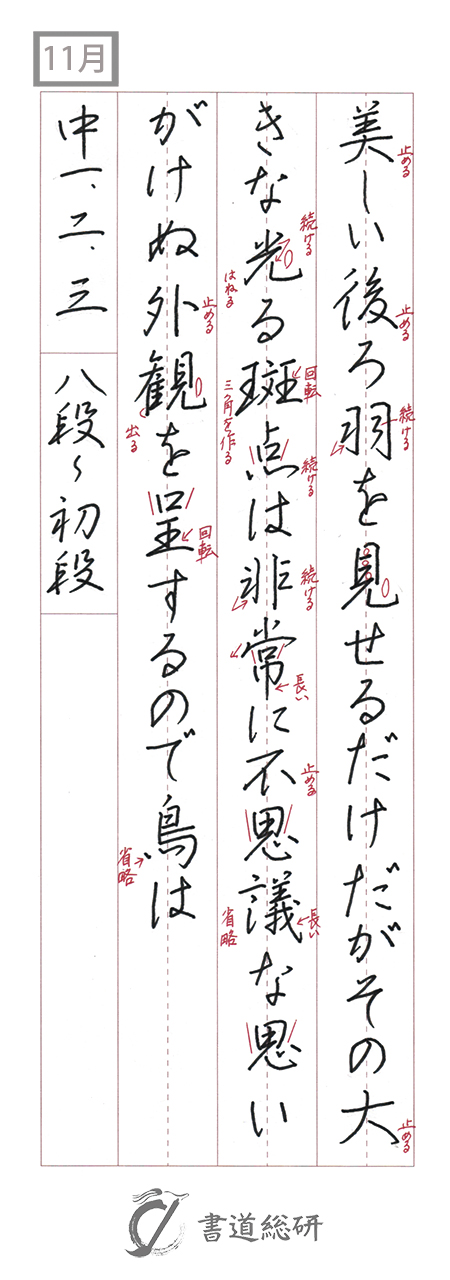 11月
美しい後ろ羽を見せるだけだがその大
止める
止める
続ける
止める
きな光る斑点は非常に不思議な思い
続ける
はねる
回転
三角を作る
続ける
続ける
長い
止める
長い
省略
がけぬ外観を呈するので鳥は
止める
出る
回転
省略
中一、二、三
八段〜初段
書道総研